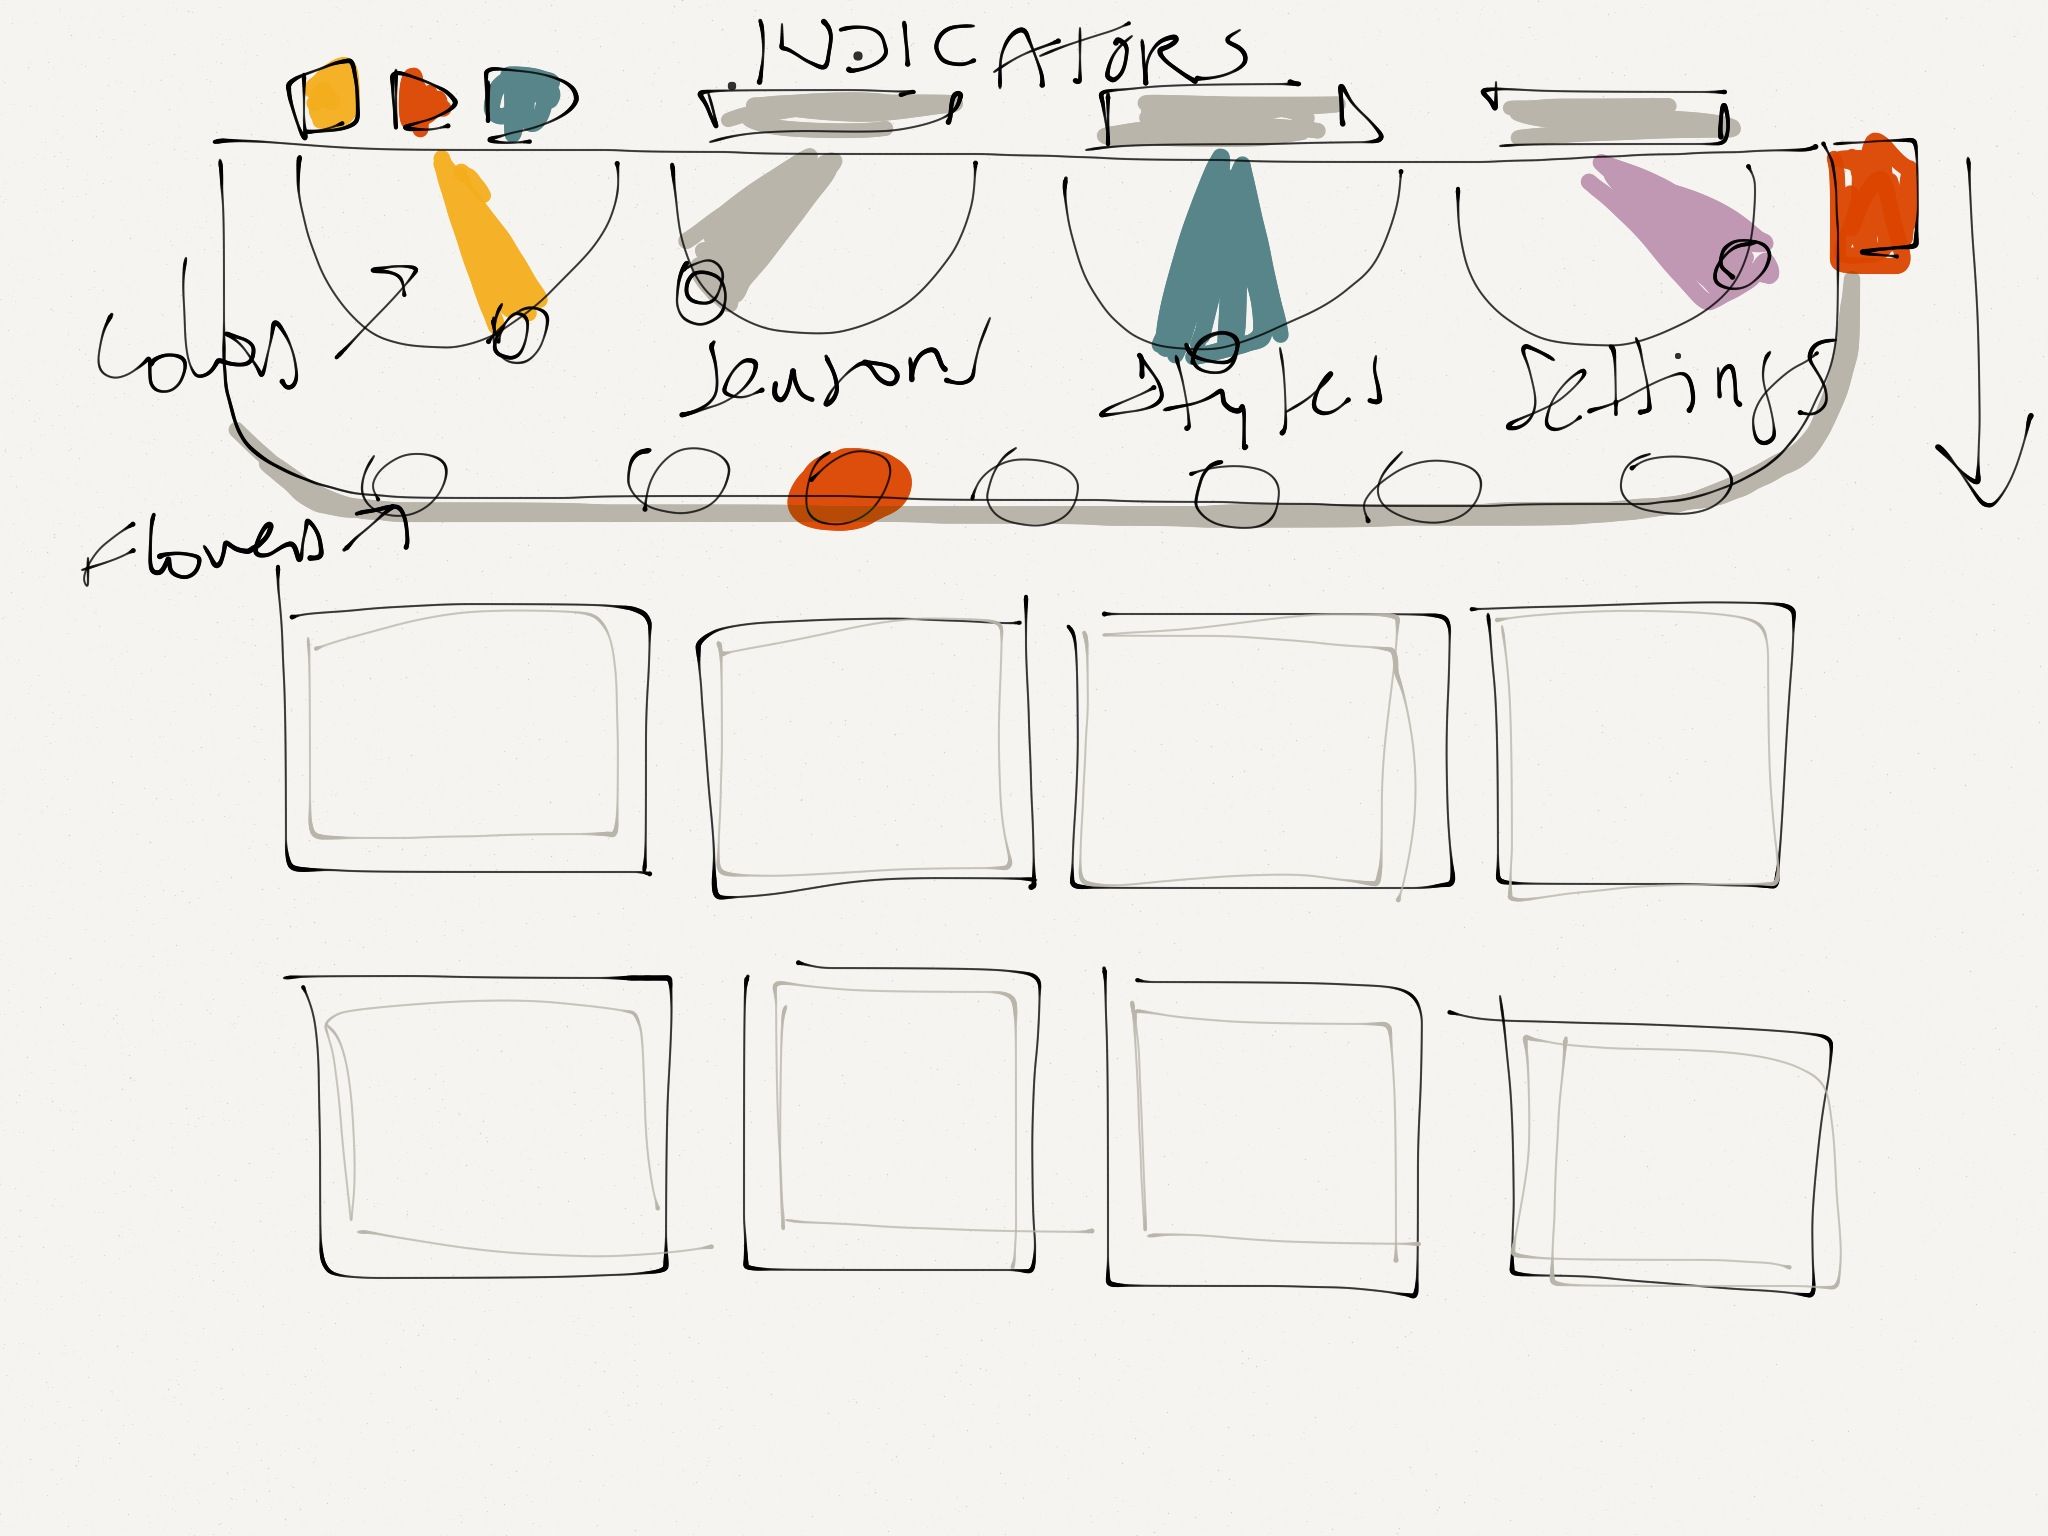 INDICATORS
Colors
Seasons
Styles
Settings
Flowers